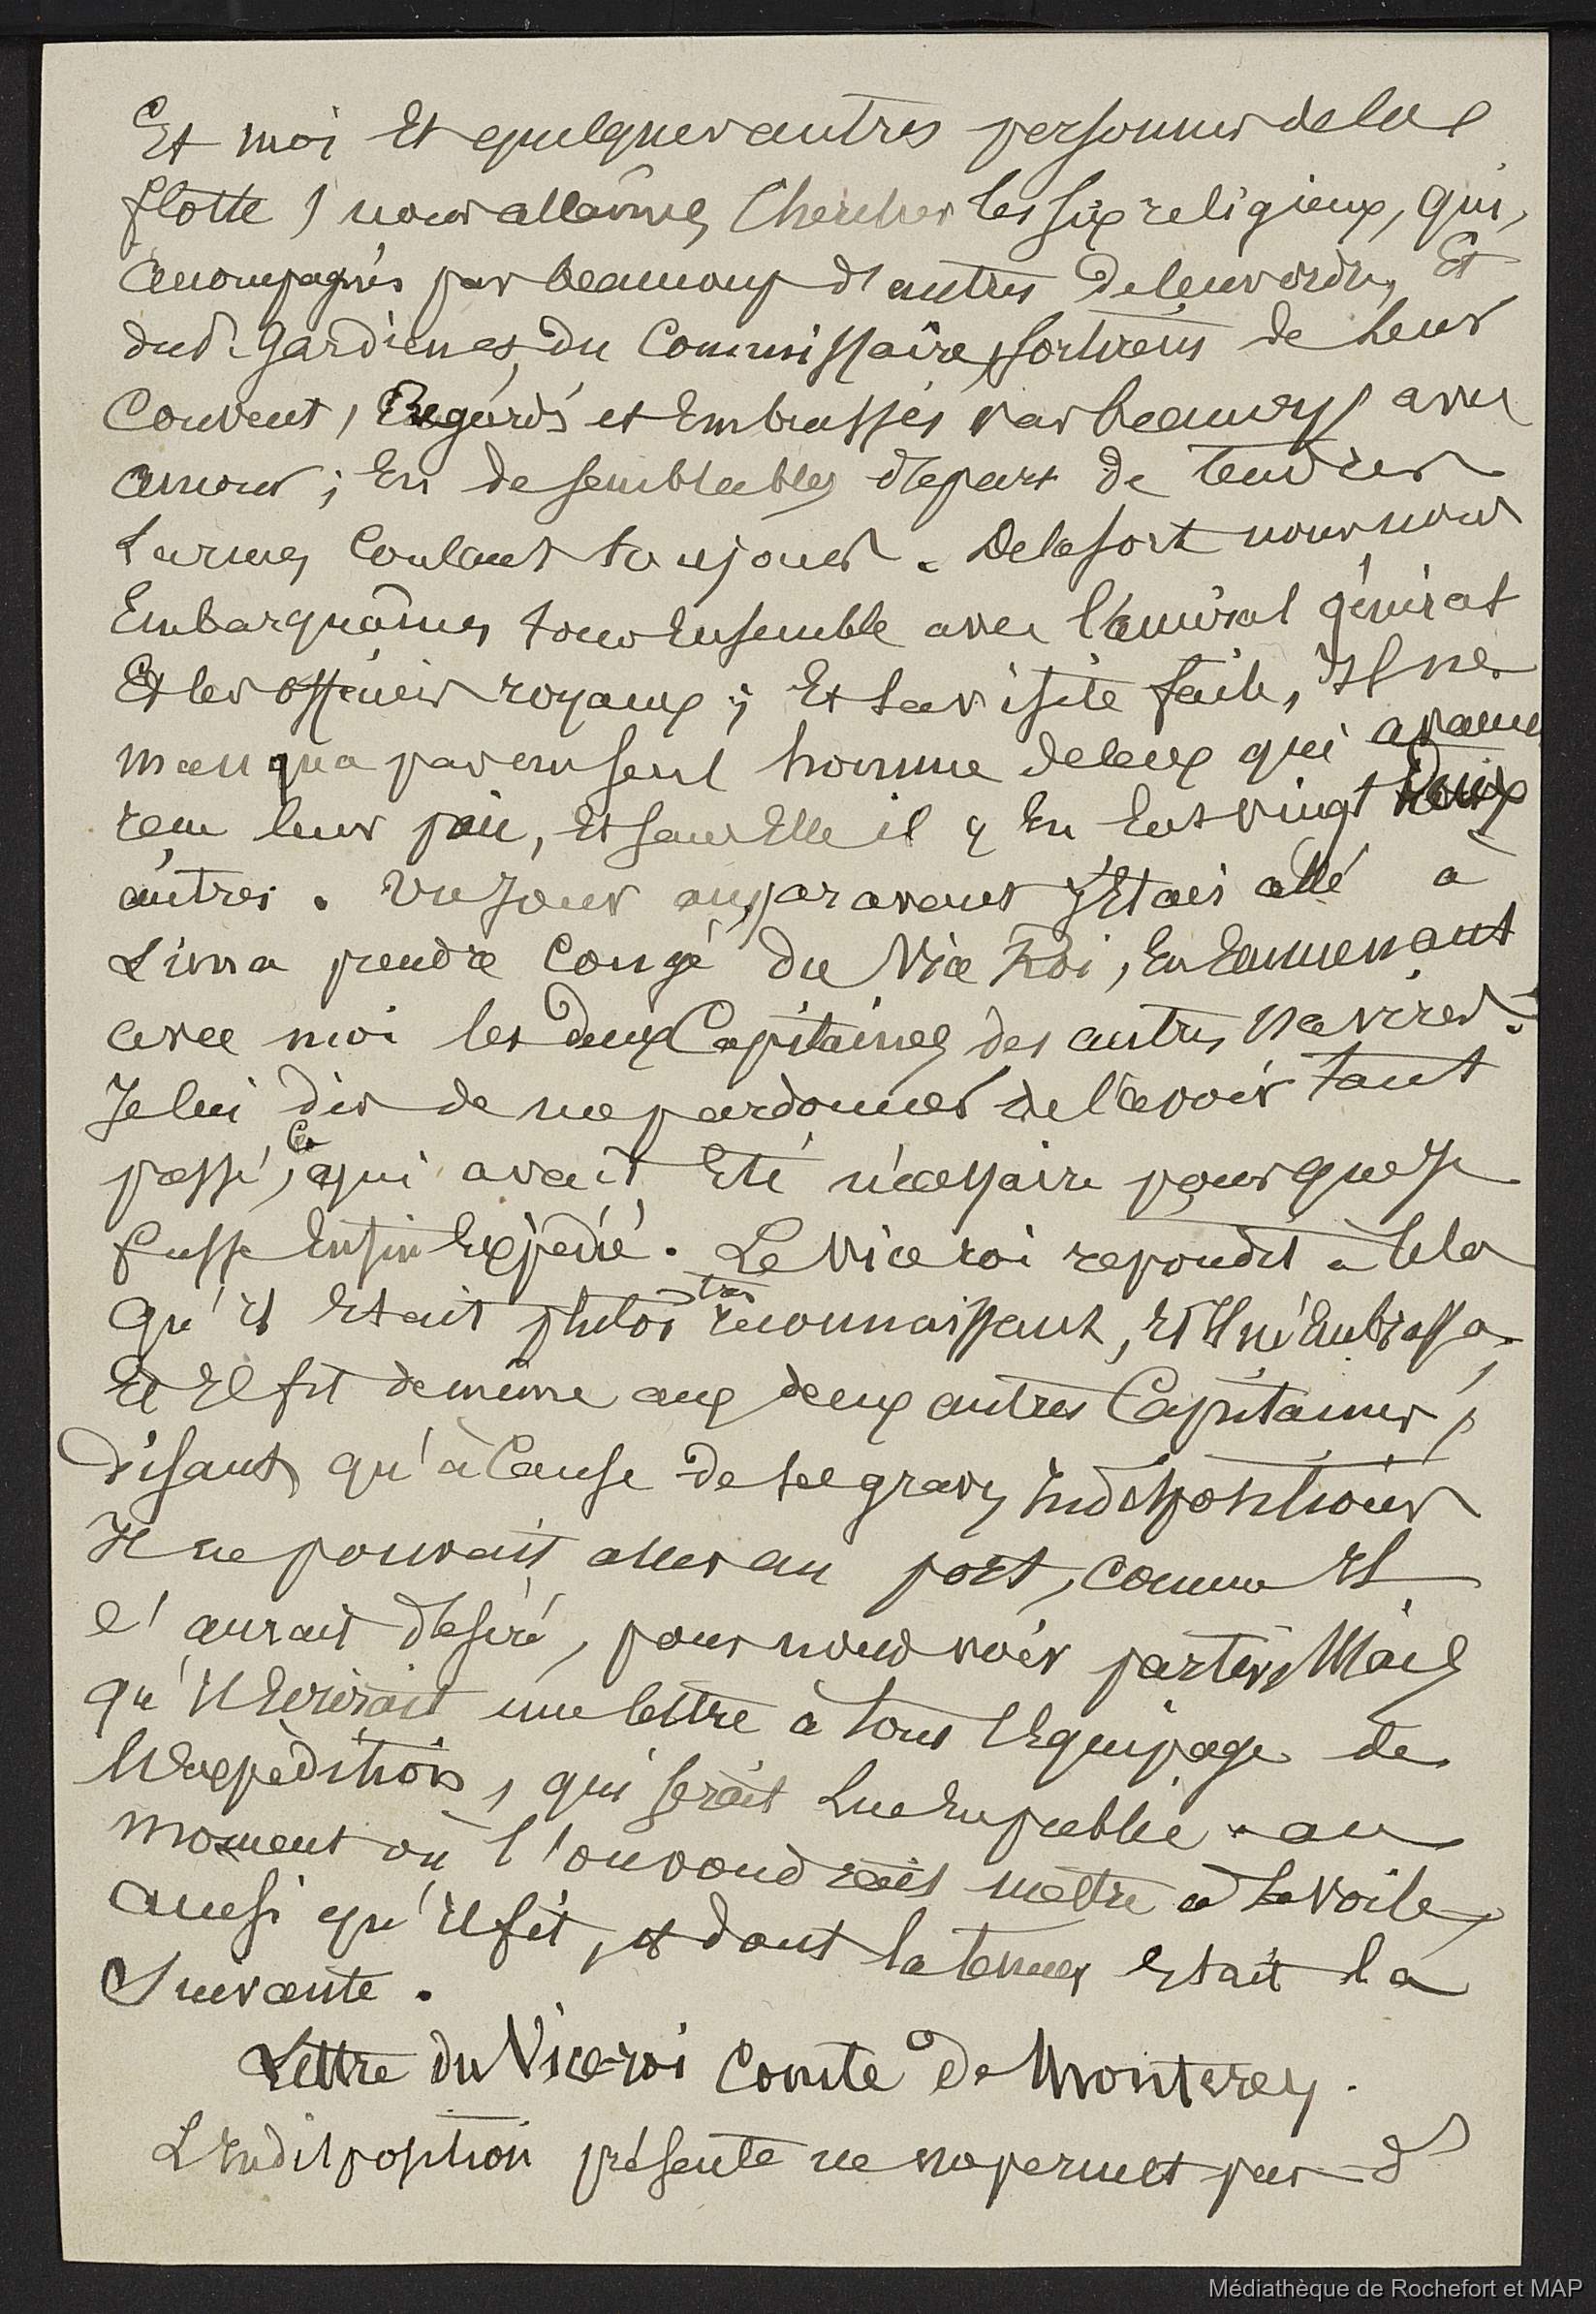 Et moi Et quelques autres personnes de la
flotte, nous allâmes Chercher les six religieux, qui,
accompagnés par beaucoup d'autres De leur ordre, Et
dud. Gardien et, du Commissaire, sortirent de leur
Couvent, Regardés et Embrassés par beaucoup avec
amour ; En de semblables départs de tendres
Larmes Coulant toujours. De la sorte nous nous
Embarquâmes tous Ensemble avec l'amiral général
Et les officiers royaux ; Et la visite faite, Il ne
manqua pas un seul homme de ceux qui avaient
reçu leur paie, Et sans Elle il y En Eut vingt deux
autres. Un Jour auparavant J'Etais allé à
Lima prendre Congé du Vice Roi, En Emmenant
avec moi les deux Capitaines des autres navires.
Je lui dis de me pardonner de l'avoir tant
pressé, Ce qui avait Eté nécessaire pour que Je
fusse Enfin Expédié. Le Vice roi repondit à Cela
qu'il Etait plutôt très reconnaissant, Et Il m'Embrassa,
Et Il fit de même aux deux autres Capitaines,
Disant qu'à Cause de ses graves Indispositions
Il ne pouvait aller au port, comme Il
l'aurait désiré, pour nous voir partir, Mais
qu'Il Ecrirait une lettre à tout l'Equipage de
l'Expédition, qui serait Lue En public au
moment où l'on voudrait mettre à la voile,
Ainsi qu'Il fit, et dont la teneur Etait la
Suivante.
Lettre du Vice-roi Comte De Monterey.
L'Indisposition présente ne me permet pas d'
Médiathèque de Rochefort et MAP